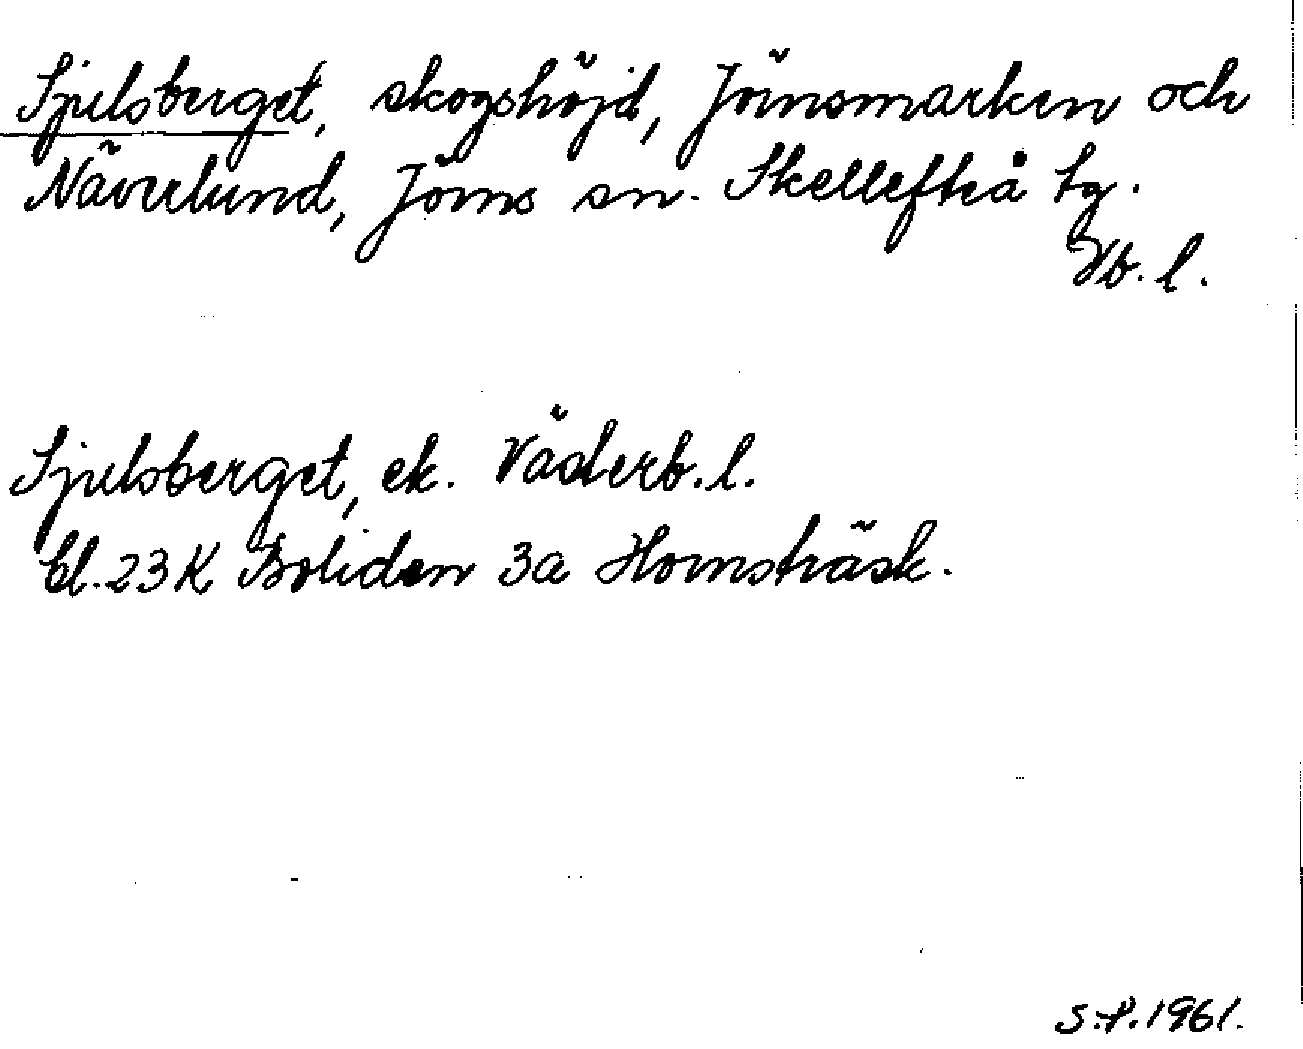 Sjulsberget, skogshöjd, Jörnsmarken och
Nävrelund, Jörns sn. Skellefteå tg.
Vb. l.
Sjulsberget, ek. Väderb. l.
bl. 23K Boliden 3a Hornsträsk.
S.P. 1961.